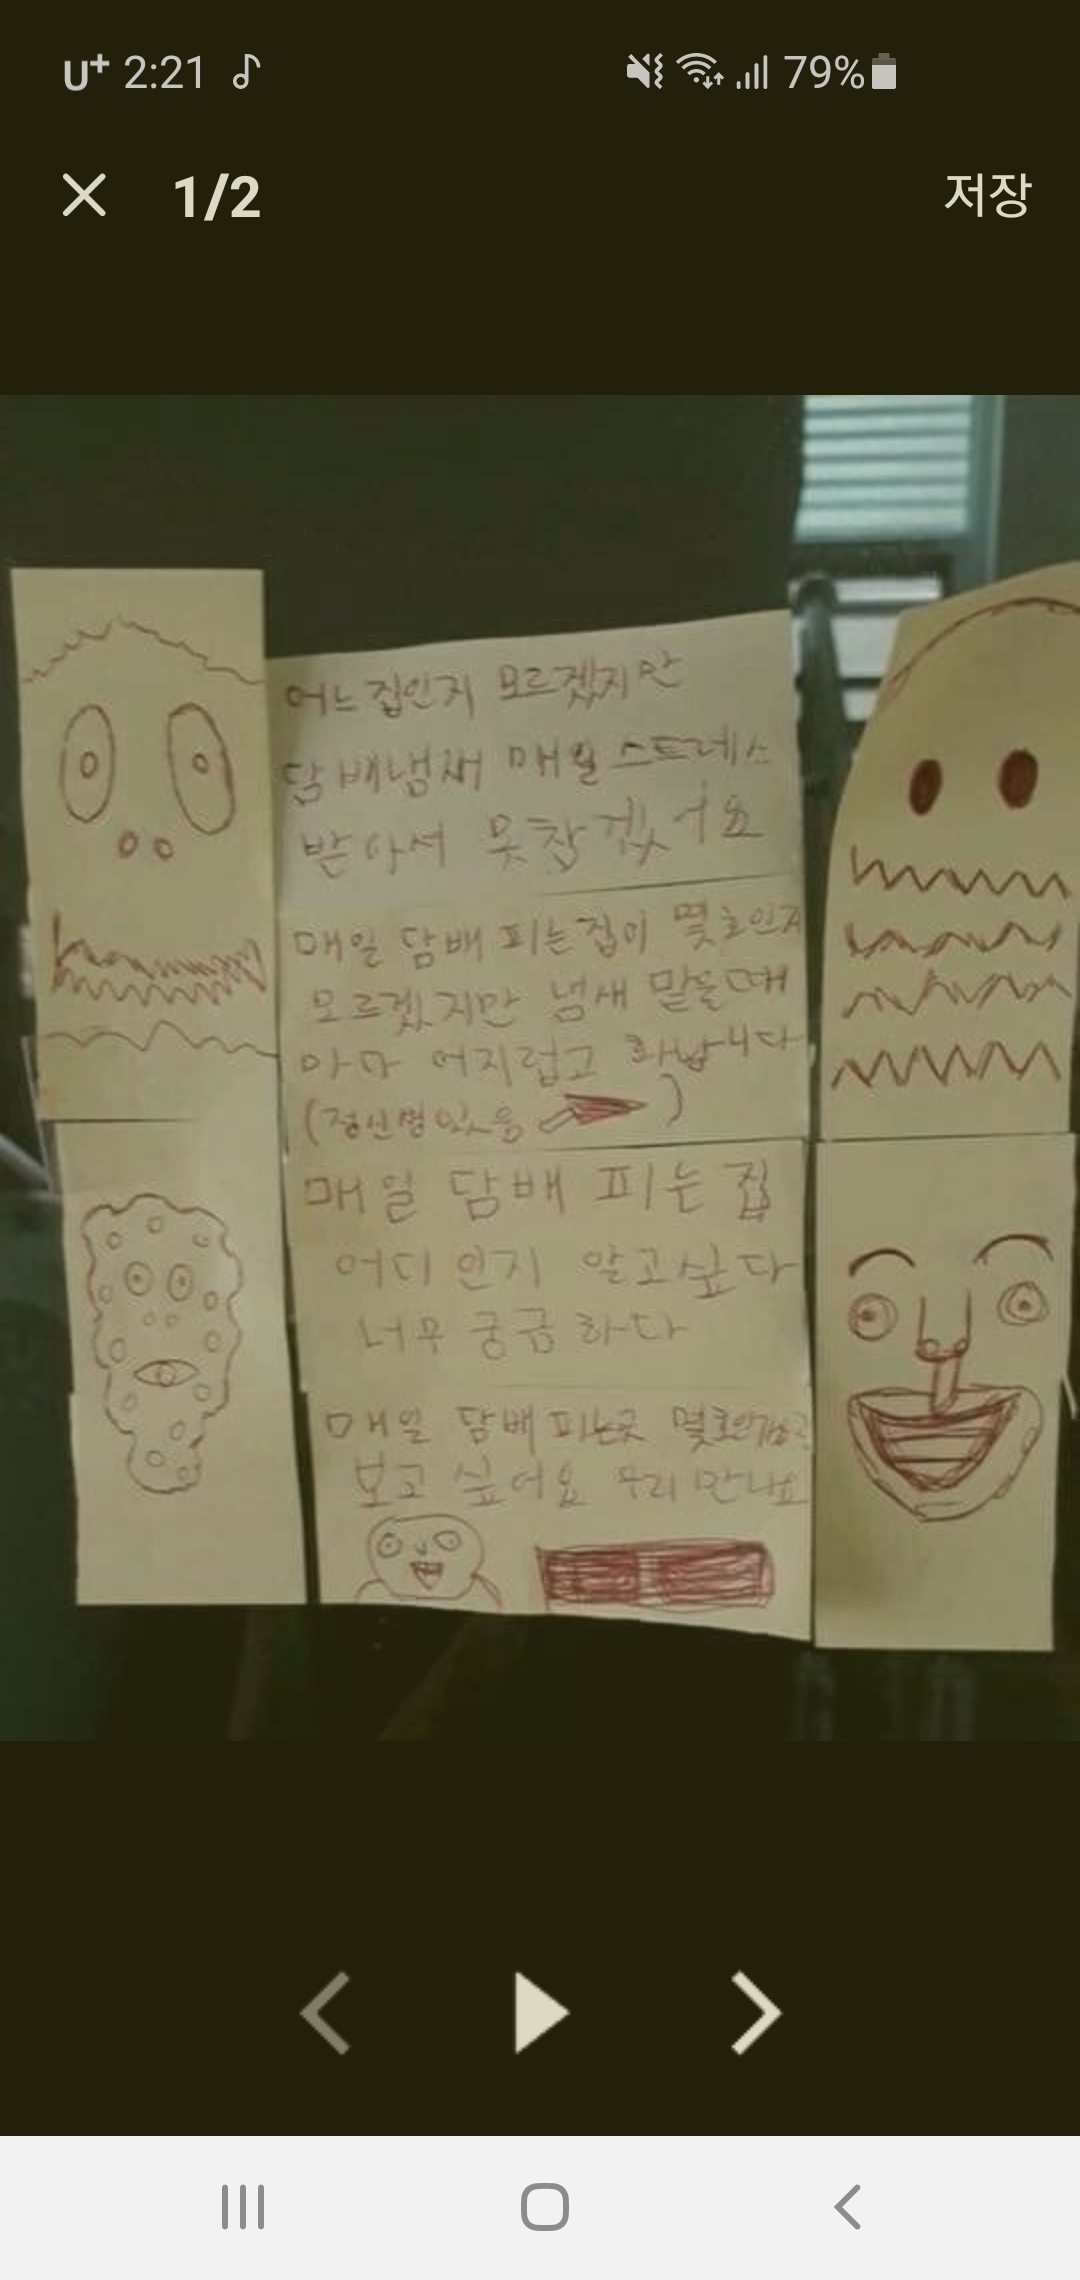 U+ 2:21
79%
1/2
저장
어느집인지 모르겠지만
담배냄새 매일 스트레스
받아서 못참겠어요
매일 담배 피는집이 몇호인지
모르겠지만 냄새 맡을때
아마 어지럽고 화납니다
(정신병있음 )
매일 담배 피는 집
어디 인지 알고싶다
너무 궁금하다
매일 담배 피는곳
보고 싶어요 우리 만나요